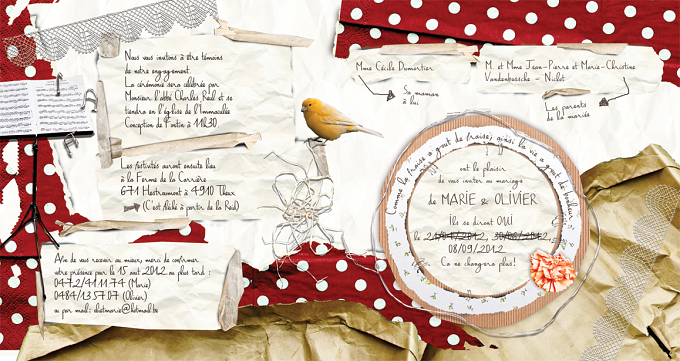 Nous vous invitons à être témoins
de notre engagement.
La cérémonie sera célébrée par
Monsieur l'abbé Charles Réul et se
tiendra en l'église de l'Immaculée
Conception de Tontin à 11h30
Les festivités auront ensuite lieu
à la Ferme de la Carrière
671 Hestramont à 4910 Theux
(C'est fléché à partir de la Reid)
Afin de vous recevoir au mieux, merci de confirmer
votre présence par le 15 aout 2012 au plus tard :
0472/41.11.74 (Marie)
0484/13.57.07 (Olivier)
ou par mail:
Mme Cécile Dumortier
Sa maman
à lui
M. et Mme Jean-Pierre et Marie-Christine
Vandenbossche - Nulot
Les parents
de la mariée
Comme la fraise a goût de fraise, ainsi la vie a goût de bonheur
ont le plaisir
de vous inviter au mariage
de MARIE & OLIVIER
Ils se diront OUI
le 21/04/2012, 30/06/2012,
08/09/2012
Ca ne changera plus!